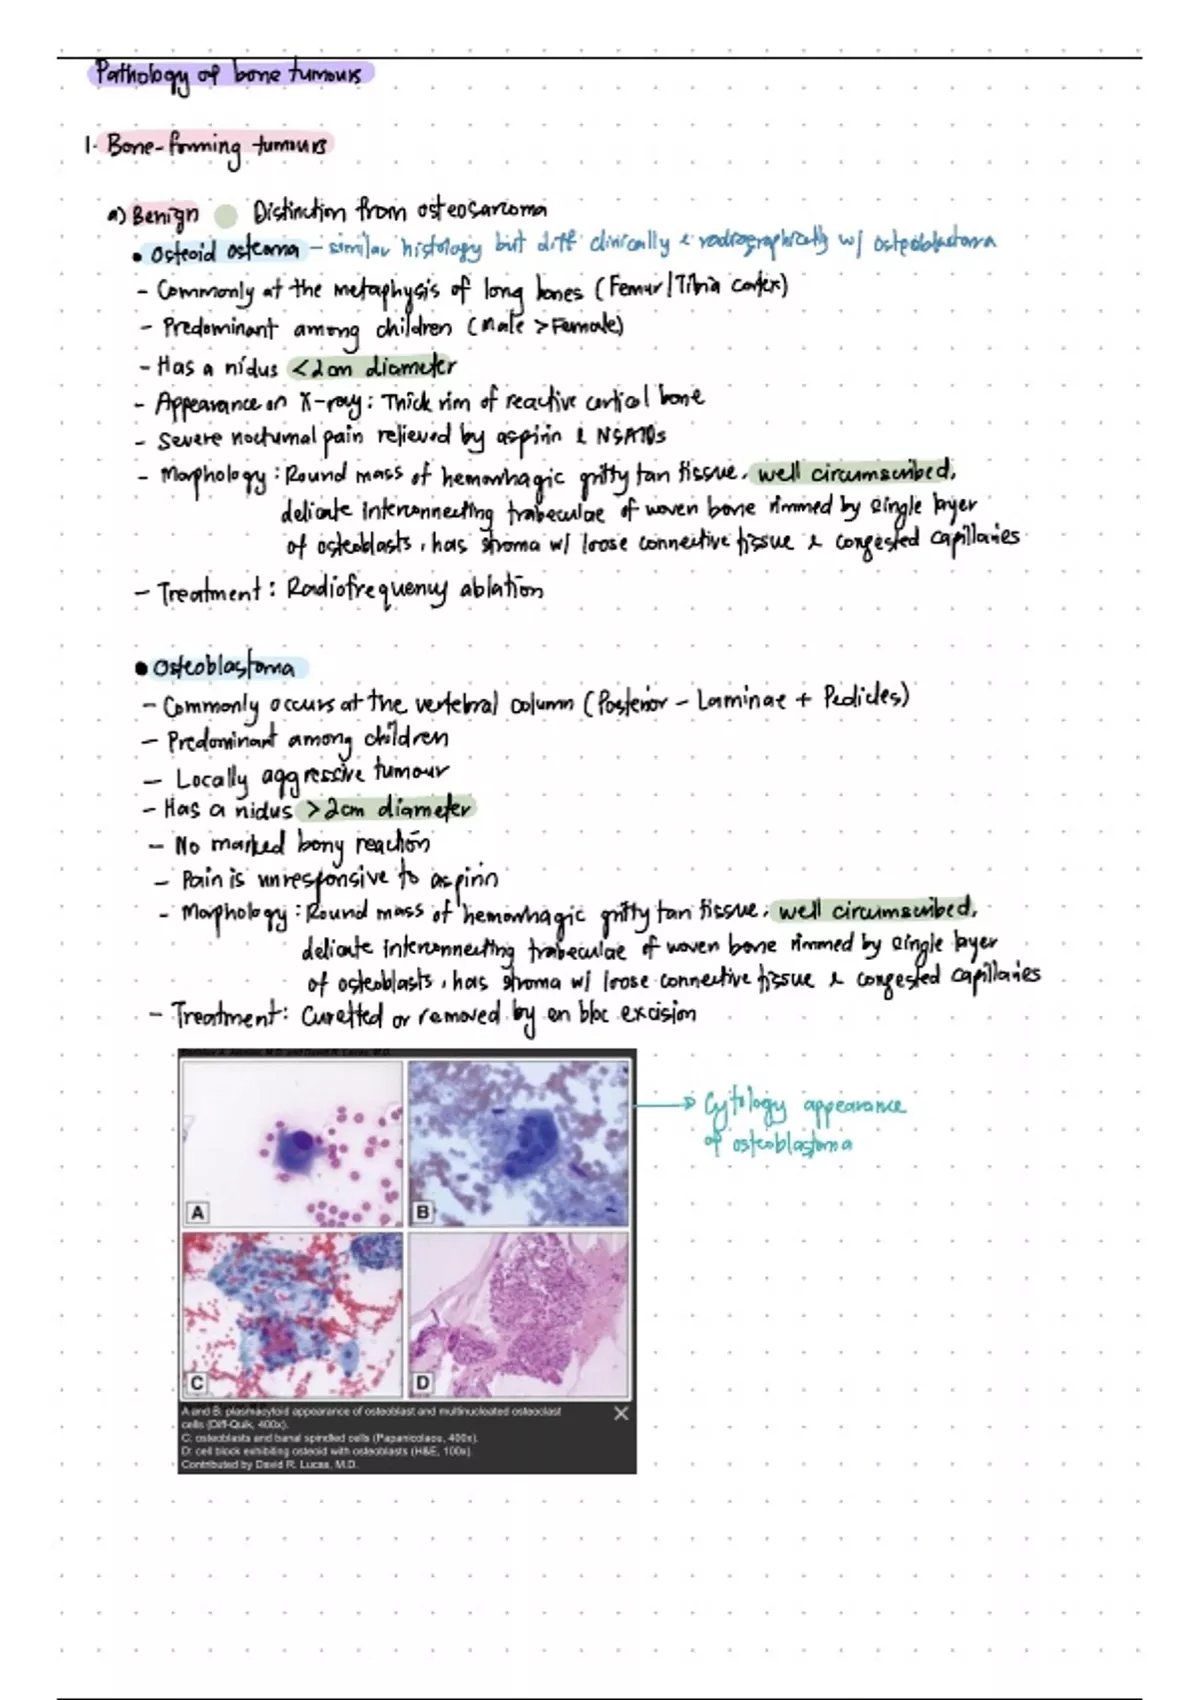 Pathology of bone tumours
1. Bone-forming tumours
a) Benign Distinction from osteosarcoma
• Osteoid osteoma – similar histology but diff clinically & radiographically w/ osteoblastoma
- Commonly at the metaphysis of long bones (Femur/Tibia cortex)
- Predominant among children (Male > Female)
- Has a nidus <2cm diameter
- Appearance on X-ray: Thick rim of reactive cortical bone
- Severe nocturnal pain relieved by aspirin & NSAIDs
- Morphology: Round mass of hemorrhagic gritty tan tissue, well circumscribed,
delicate interconnecting trabeculae of woven bone rimmed by single layer
of osteoblasts, has stroma w/ loose connective tissue & congested capillaries
- Treatment: Radiofrequency ablation
• Osteoblastoma
- Commonly occurs at the vertebral column (Posterior - Laminae + Pedicles)
- Predominant among children
- Locally aggressive tumour
- Has a nidus >2cm diameter
- No marked bony reaction
- Pain is unresponsive to aspirin
- Morphology: Round mass of hemorrhagic gritty tan tissue, well circumscribed,
delicate interconnecting trabeculae of woven bone rimmed by single layer
of osteoblasts, has stroma w/ loose connective tissue & congested capillaries
- Treatment: Curetted or removed by en bloc excision
M.D. and David R. Lucas, M.D.
→ Cytology appearance
of osteoblastoma
A
B
C
D
A and B: plasmacytoid appearance of osteoblast and multinucleated osteoclast
cells (Diff-Quik, 400x).
C: osteoblasts and banal spindled cells (Papanicolaou, 400x).
D: cell block exhibiting osteoid with osteoblasts (H&E, 100x).
Contributed by David R. Lucas, M.D.